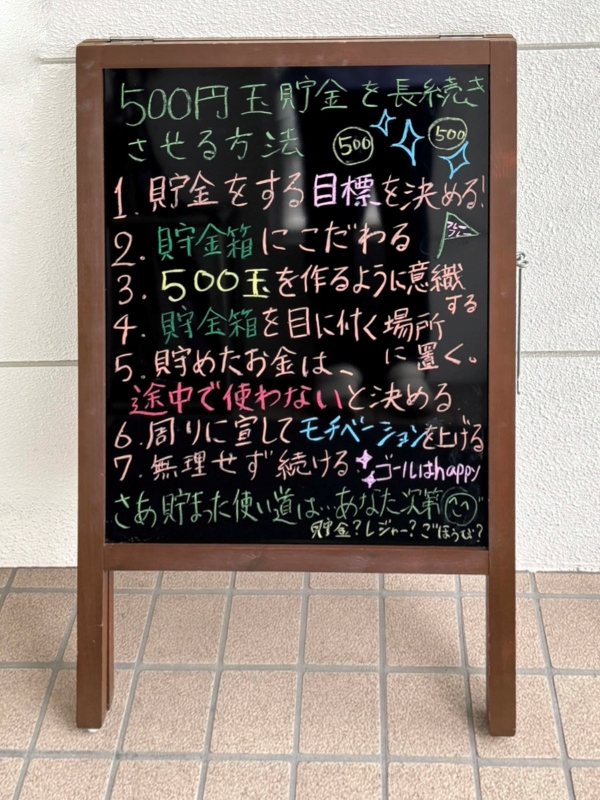 500円玉貯金を長続き
させる方法 500 500
1. 貯金をする目標を決める!
2. 貯金箱にこだわる
3. 500玉を作るように意織
する
4. 貯金箱を目に付く場所
に置く。
5. 貯めたお金は、
途中で使わないと決める
6. 周りに宣してモチベーションを上げる
7. 無理せず続ける。ゴールはhappy
さあ貯まった使い道は…あなた次第
貯金?レジャー?ごほうび?